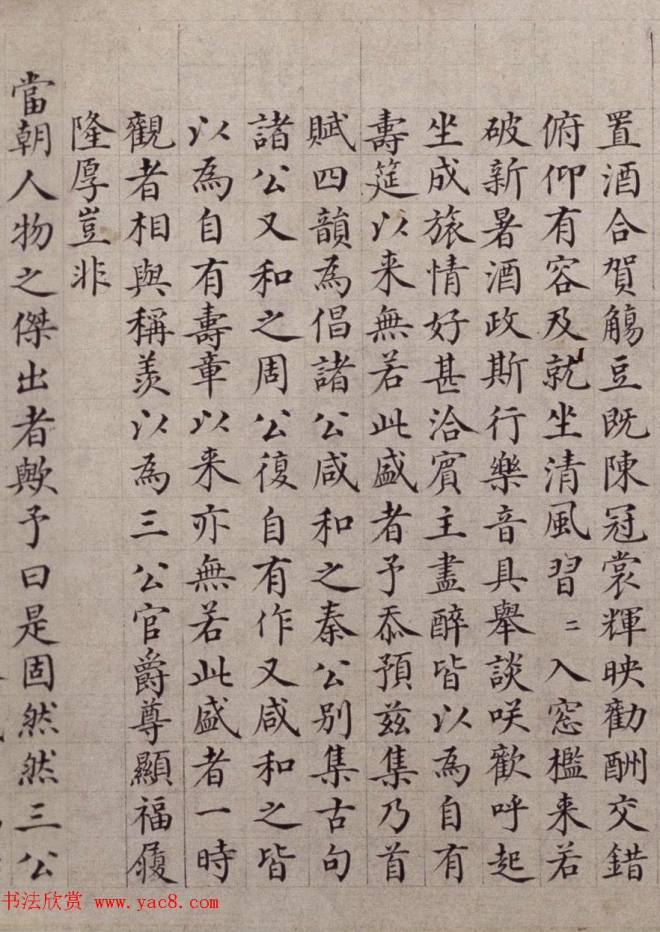 置酒合賀觴豆既陳冠裳輝映勸酬交錯
俯仰有容及就坐清風習〻入窓檻来若
破新暑酒政斯行樂音具舉談咲歡呼起
坐成旅情好甚洽賓主盡醉皆以為自有
壽筵以来無若此盛者予忝預兹集乃首
賦四韻為倡諸公咸和之秦公别集古句
諸公又和之周公復自有作又咸和之皆
以為自有壽章以来亦無若此盛者一時
觀者相與稱羡以為三公官爵尊顯福履
隆厚豈非
當朝人物之傑出者歟予曰是固然然三公
书法欣赏 www.yac8.com